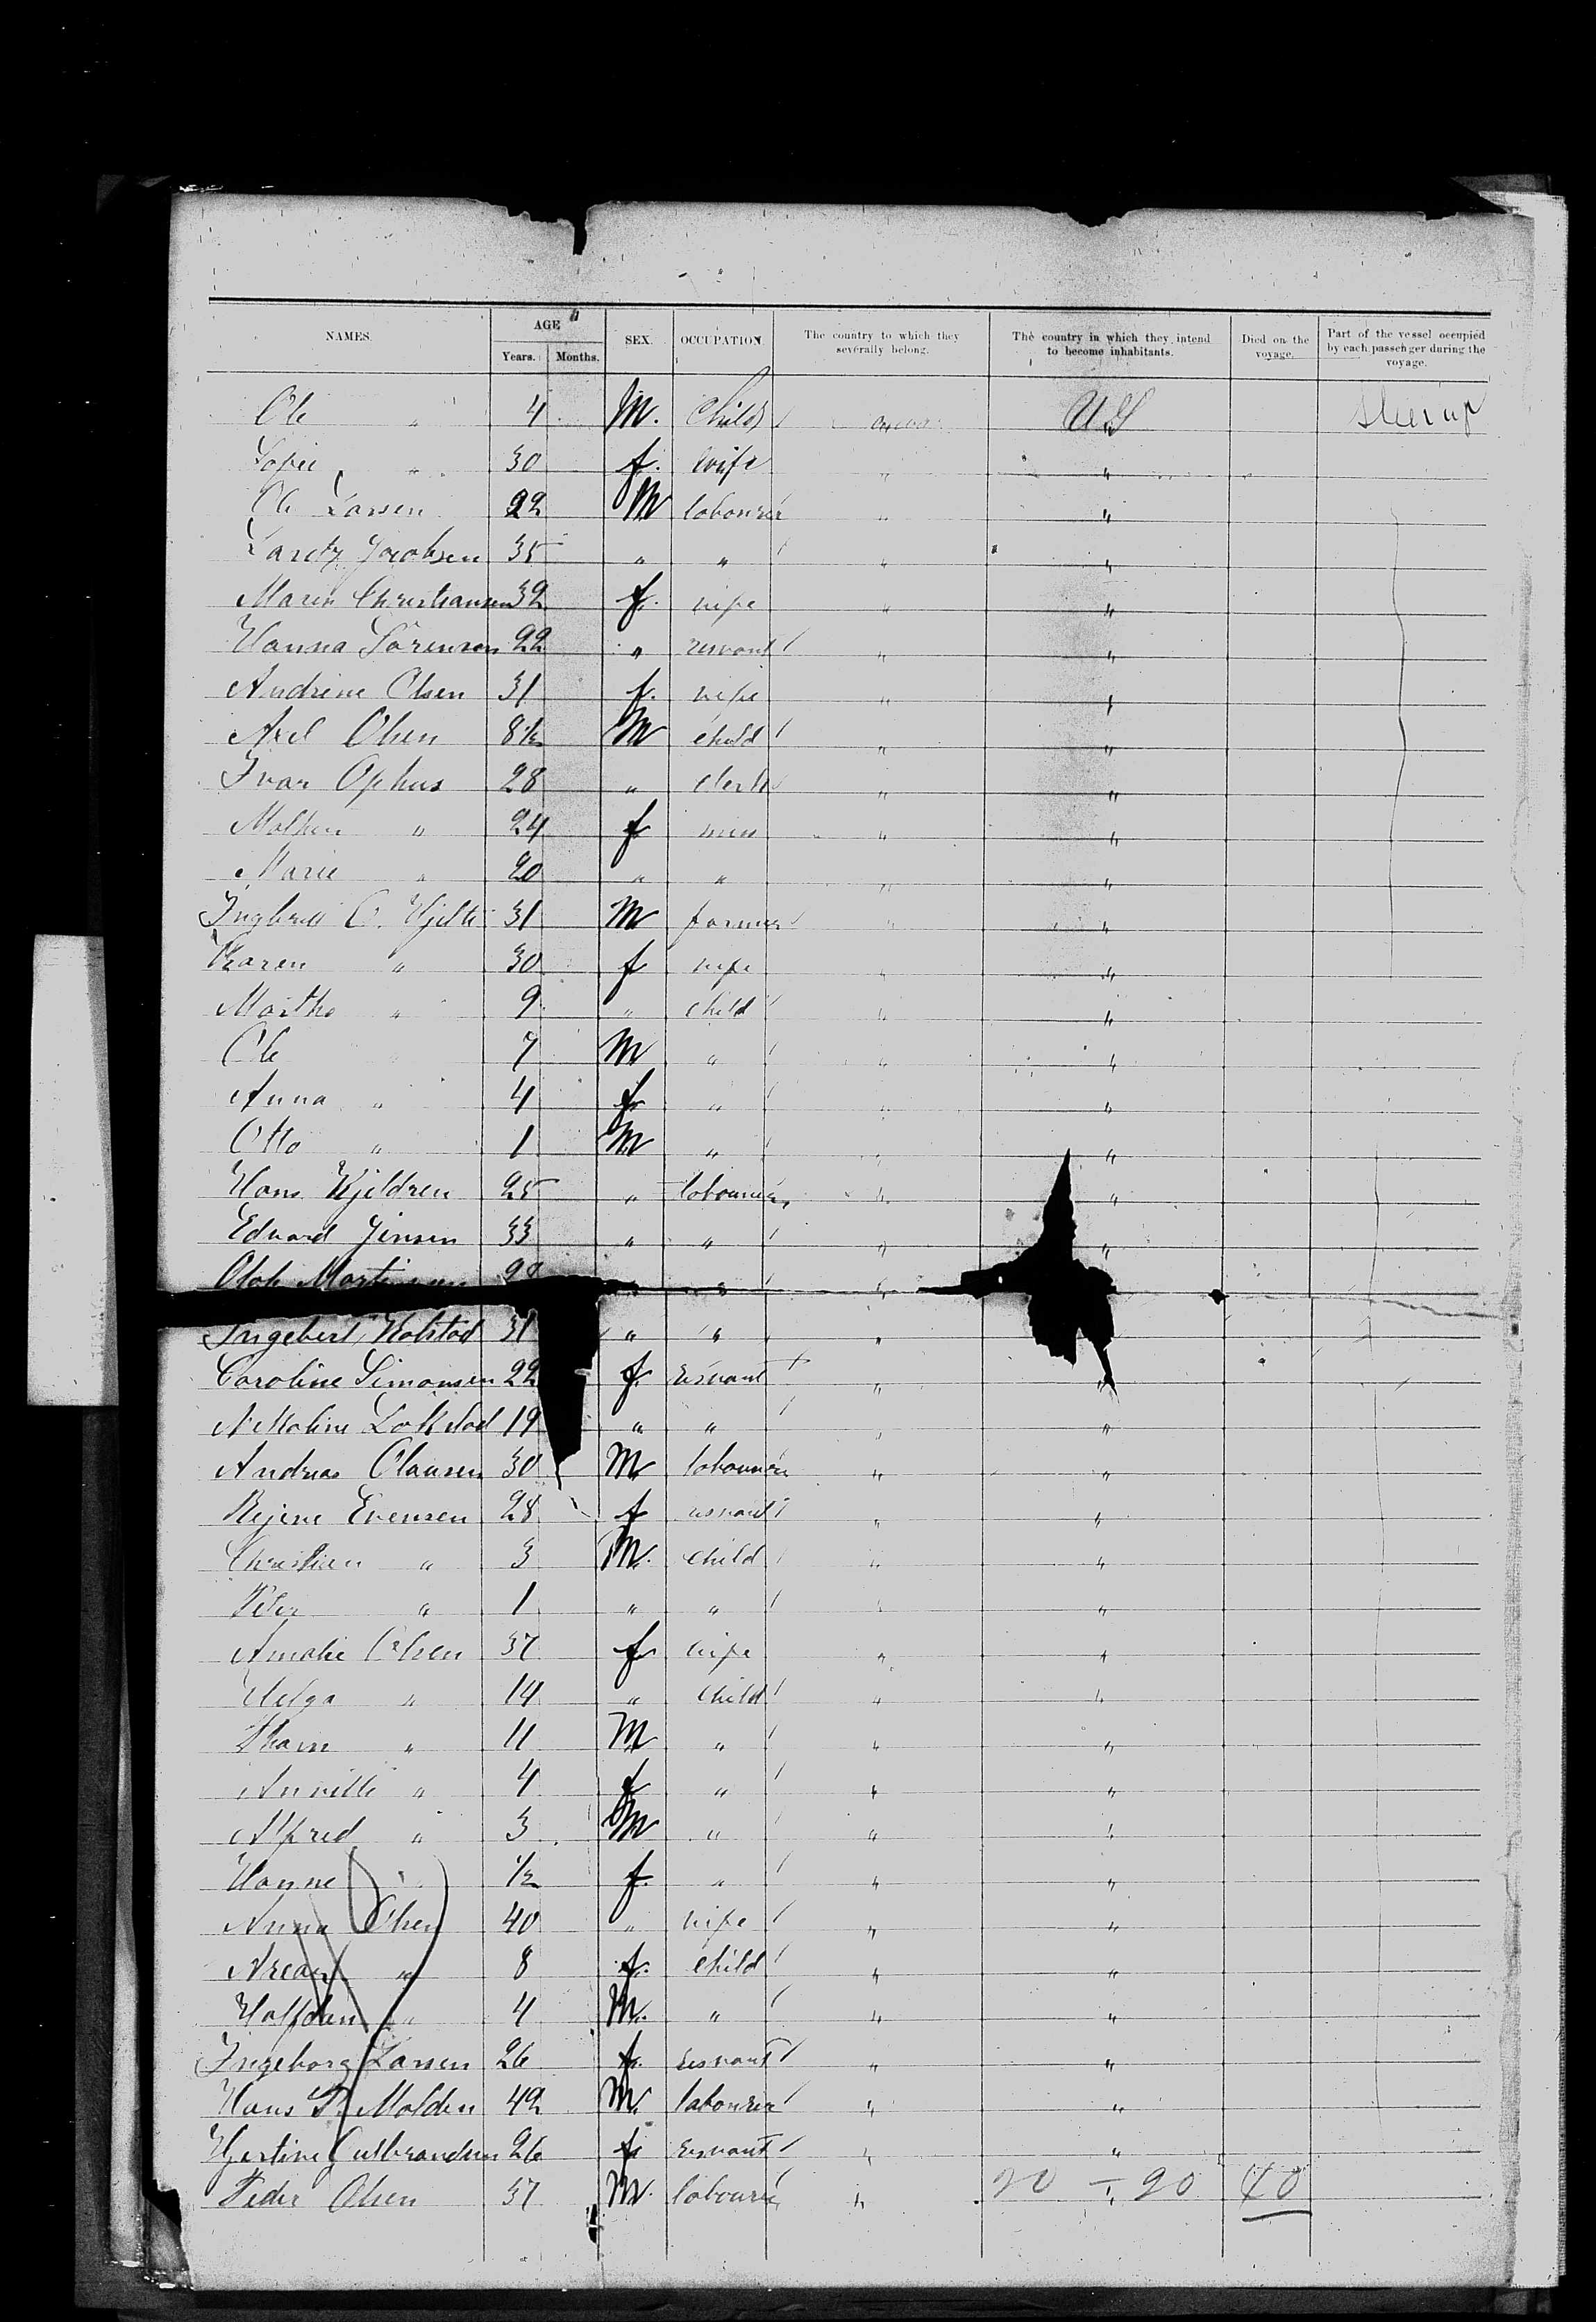 NAMES. AGE Years. Months. SEX. OCCUPATION. The country to which they severally belong. The country in which they intend to become inhabitants. Died on the voyage. Part of the vessel occupied by each passenger during the voyage.
Ole " 4 M. Child U.S
" 30 f. wife " "
Ole Larsen 22 M labourer " "
Jacobsen 35 " " " "
Maren Christiansen 32 f. wife " "
Hanna Sorensen 22 " servant " "
Andrine Olsen 31 f. wife " "
Axel Olsen 8 1/2 M child " "
Ivar Ophus 28 " clerk " "
" 24 f miss " "
Marie " 20 " " " "
O. 31 M farmer " "
Karen " 30 f wife " "
Martha " 9 " child " "
Ole " 7 M " " "
Anna " 4 f " " "
Otto " 1 M " " "
Hans Kjeldsen 25 " labourer " "
Edward Jensen 33 " " " "
Martinsen " " " "
Ingebert 31 " " "
Caroline Simonsen 22 f servant " "
19 " " " "
Andreas Clausen 30 M labourer " "
Evensen 28 f servant " "
Christian " 3 M. child " "
Peter " 1 " " " "
Amalie Olsen 37 f wife " "
Helga " 14 " child " "
" 11 M " " "
" 4 f " " "
Alfred " 3 M " " "
Hanne " 1/2 f. " " "
Anna Olsen 40 " wife " "
" 8 f. child " "
Halfdan " 4 M. " " "
Ingeborg Larsen 26 f. servant " "
Hans P. Molden 42 M labourer " "
Gulbrandsen 26 f servant " "
Peder Olsen 37 M. labourer " " 20 - 20 40